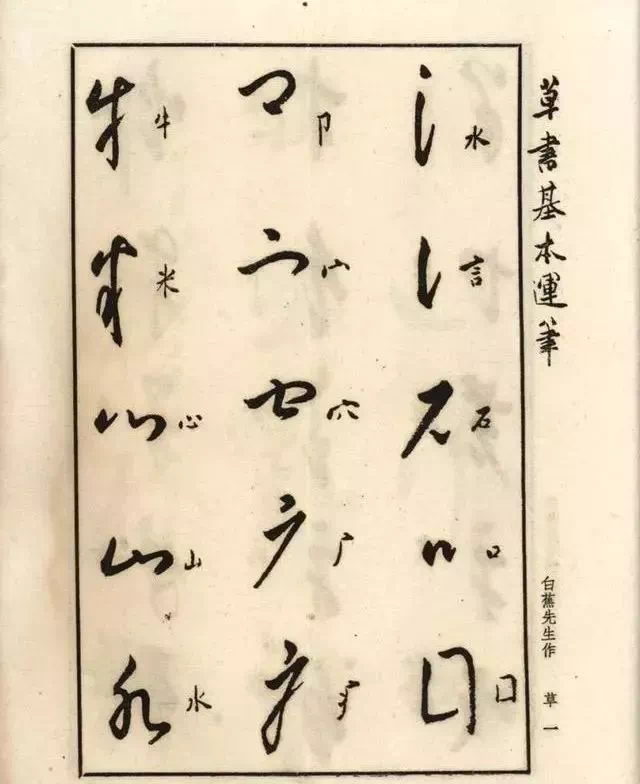 草書基本運筆
白蕉先生作 草一
水
言
石
口
囗
卩
宀
穴
厂
牛
米
心
山
水